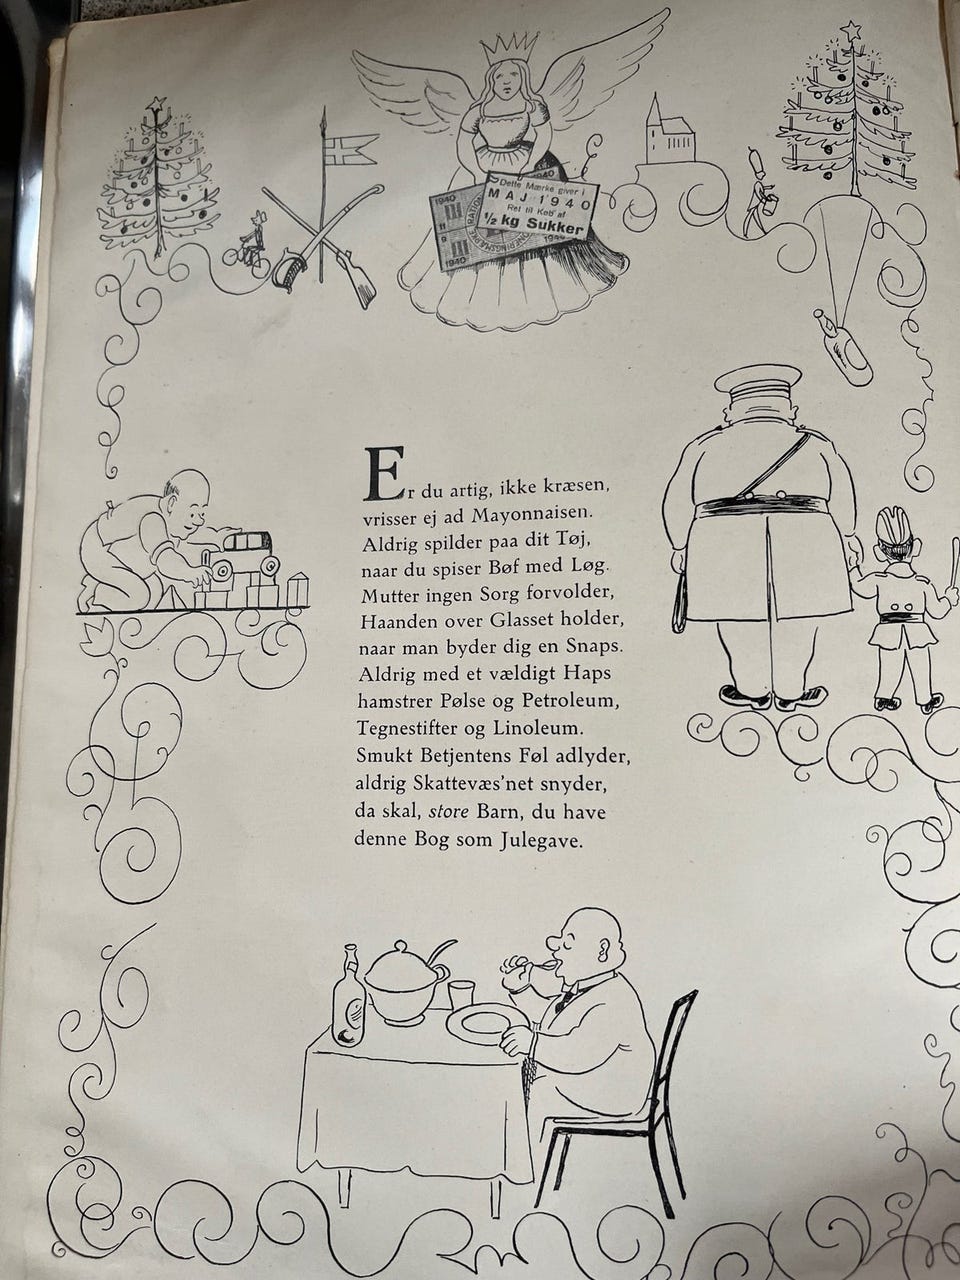 Dette Mærke giver i
MAJ 1940
Ret til Køb af
1/2 kg Sukker
1940
1940
11
9
1940
Er du artig, ikke kræsen,
vrisser ej ad Mayonnaisen.
Aldrig spilder paa dit Tøj,
naar du spiser Bøf med Løg.
Mutter ingen Sorg forvolder,
Haanden over Glasset holder,
naar man byder dig en Snaps.
Aldrig med et vældigt Haps
hamstrer Pølse og Petroleum,
Tegnestifter og Linoleum.
Smukt Betjentens Føl adlyder,
aldrig Skattevæs'net snyder,
da skal, store Barn, du have
denne Bog som Julegave.